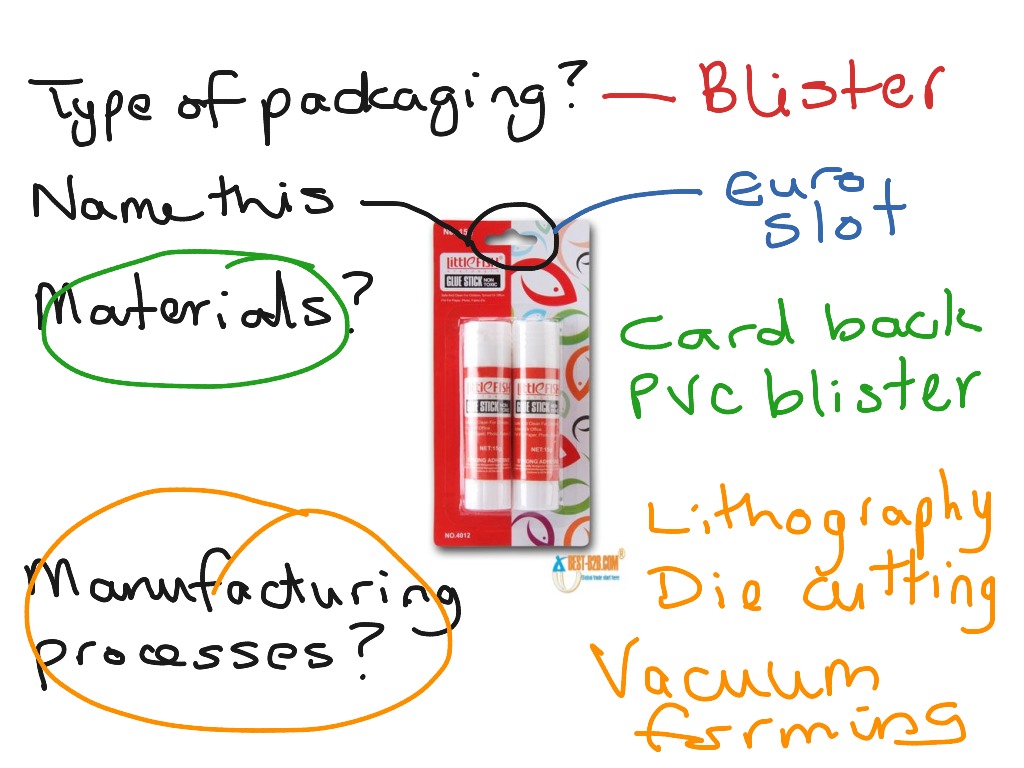 Type of packaging? — Blister
Name this
Euro
slot
Materials?
Card back
PVC blister
Manufacturing
processes?
Lithography
Die cutting
Vacuum
forming
LittlEFISH
GLUE STICK NON TOXIC
LittlEFISH
GLUE STICK
NET:15g
STRONG ADHESIVE
NO.4012
BEST-B2B.COM®
Global trade start here